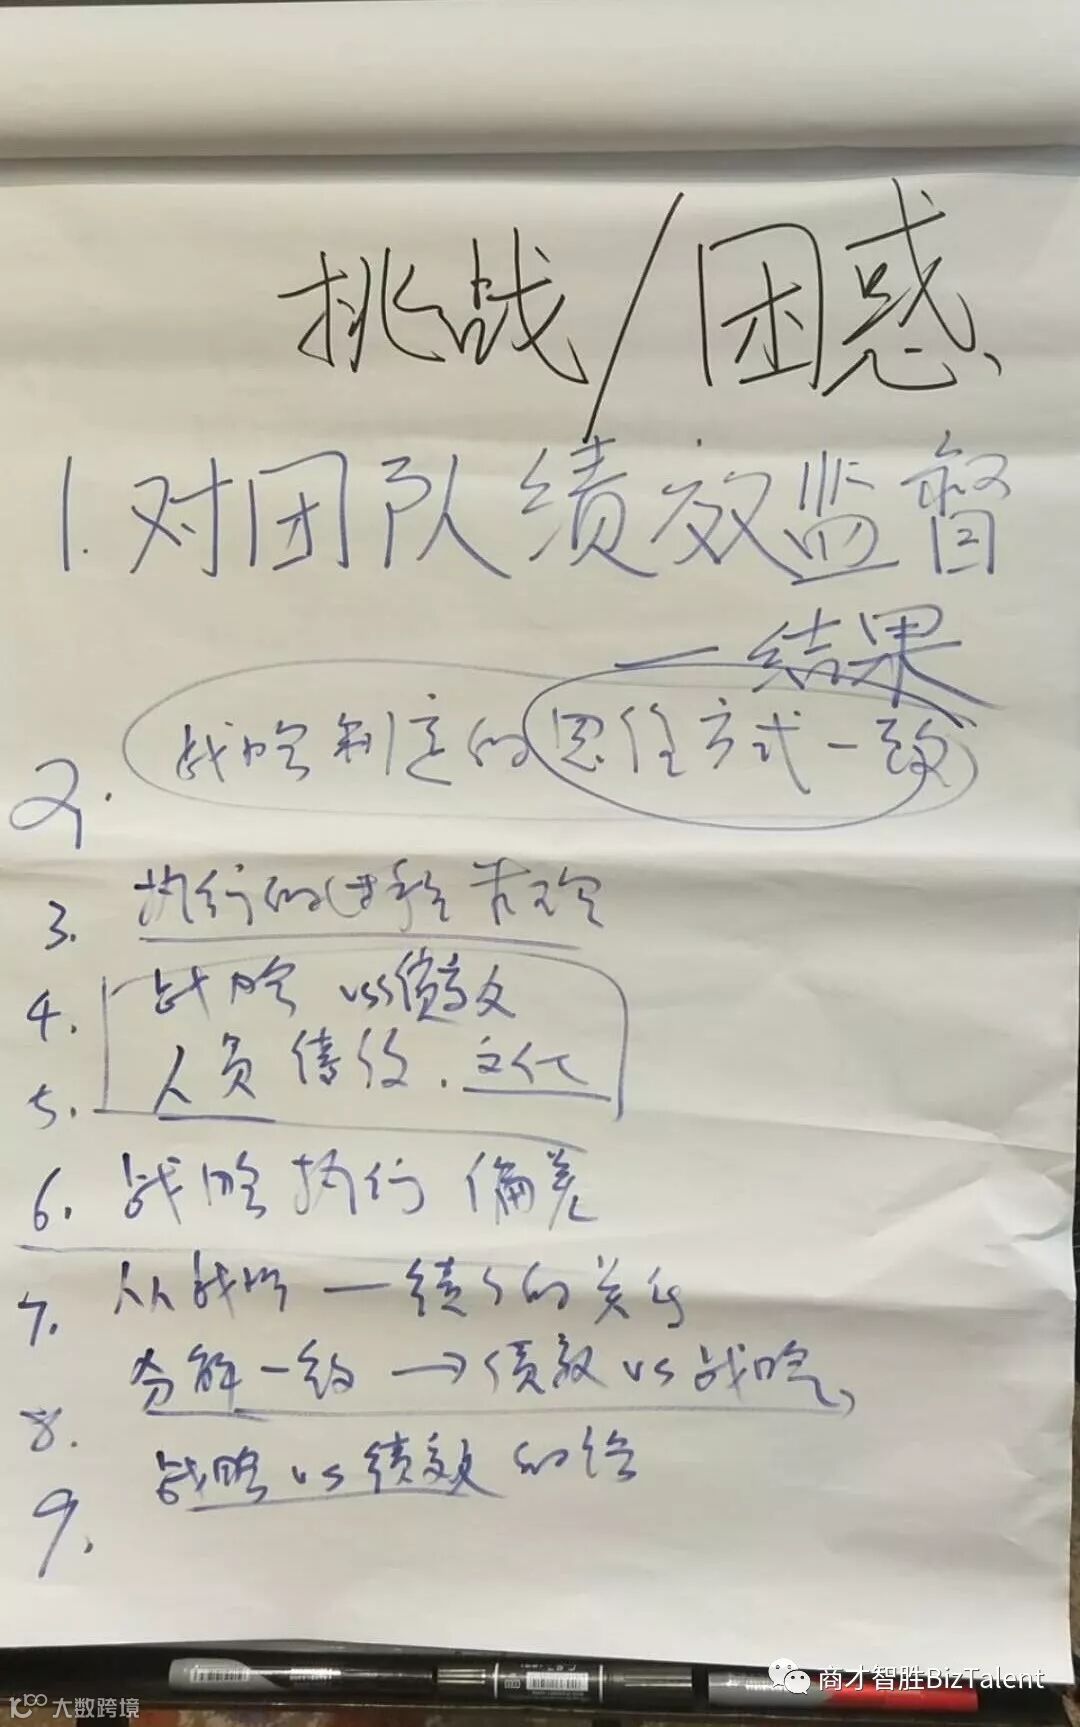 挑战/困惑
1.对团队绩效监督
—结果
2.战略制定的思维方式一致
3.执行的过程
4.战略 vs 绩效
5.人员 绩效.文化
6.战略执行 偏差
7.从战略—绩效的关系
8.分解一致→绩效 vs 战略
9.战略 vs 绩效的
商才智胜BizTalent
大数跨境